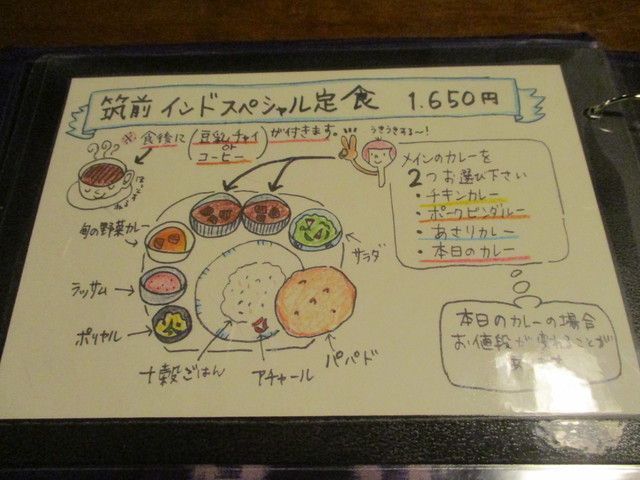 筑前 インドスペシャル定食 1.650円
※食後に(豆乳チャイ or コーヒー)が付きます。
うきうきする〜!
メインのカレーを
2つお選び下さい
・チキンカレー
・ポークビンダルー
・あさりカレー
・本日のカレー
旬の野菜カレー
サラダ
ラッサム
ポリヤル
十穀ごはん
アチャール
パパド
本日のカレーの場合
お値段が変わることが